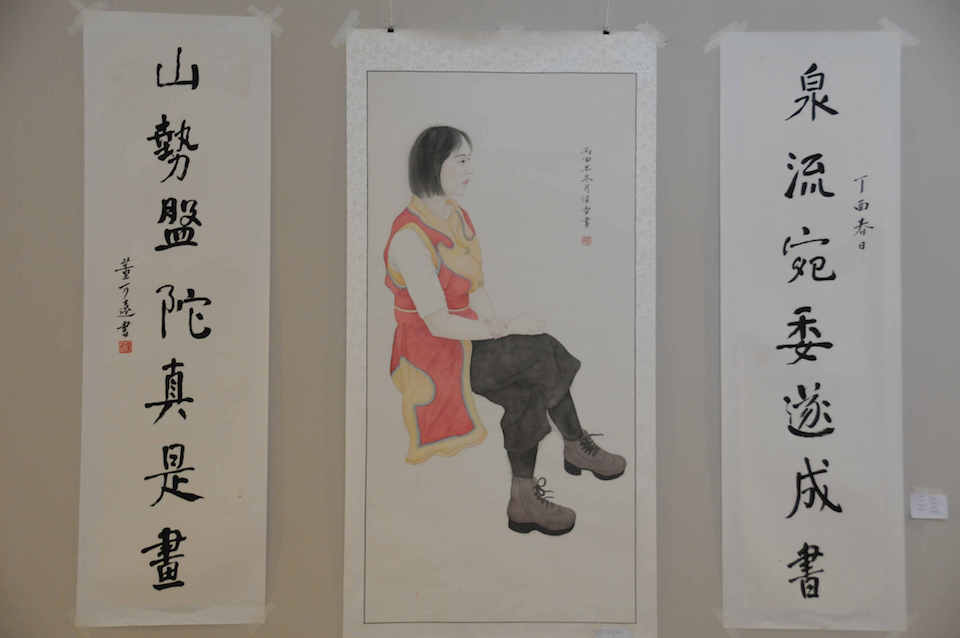 泉流宛委遂成書
丁酉春日
山勢盤陀真是畫
董可遠書